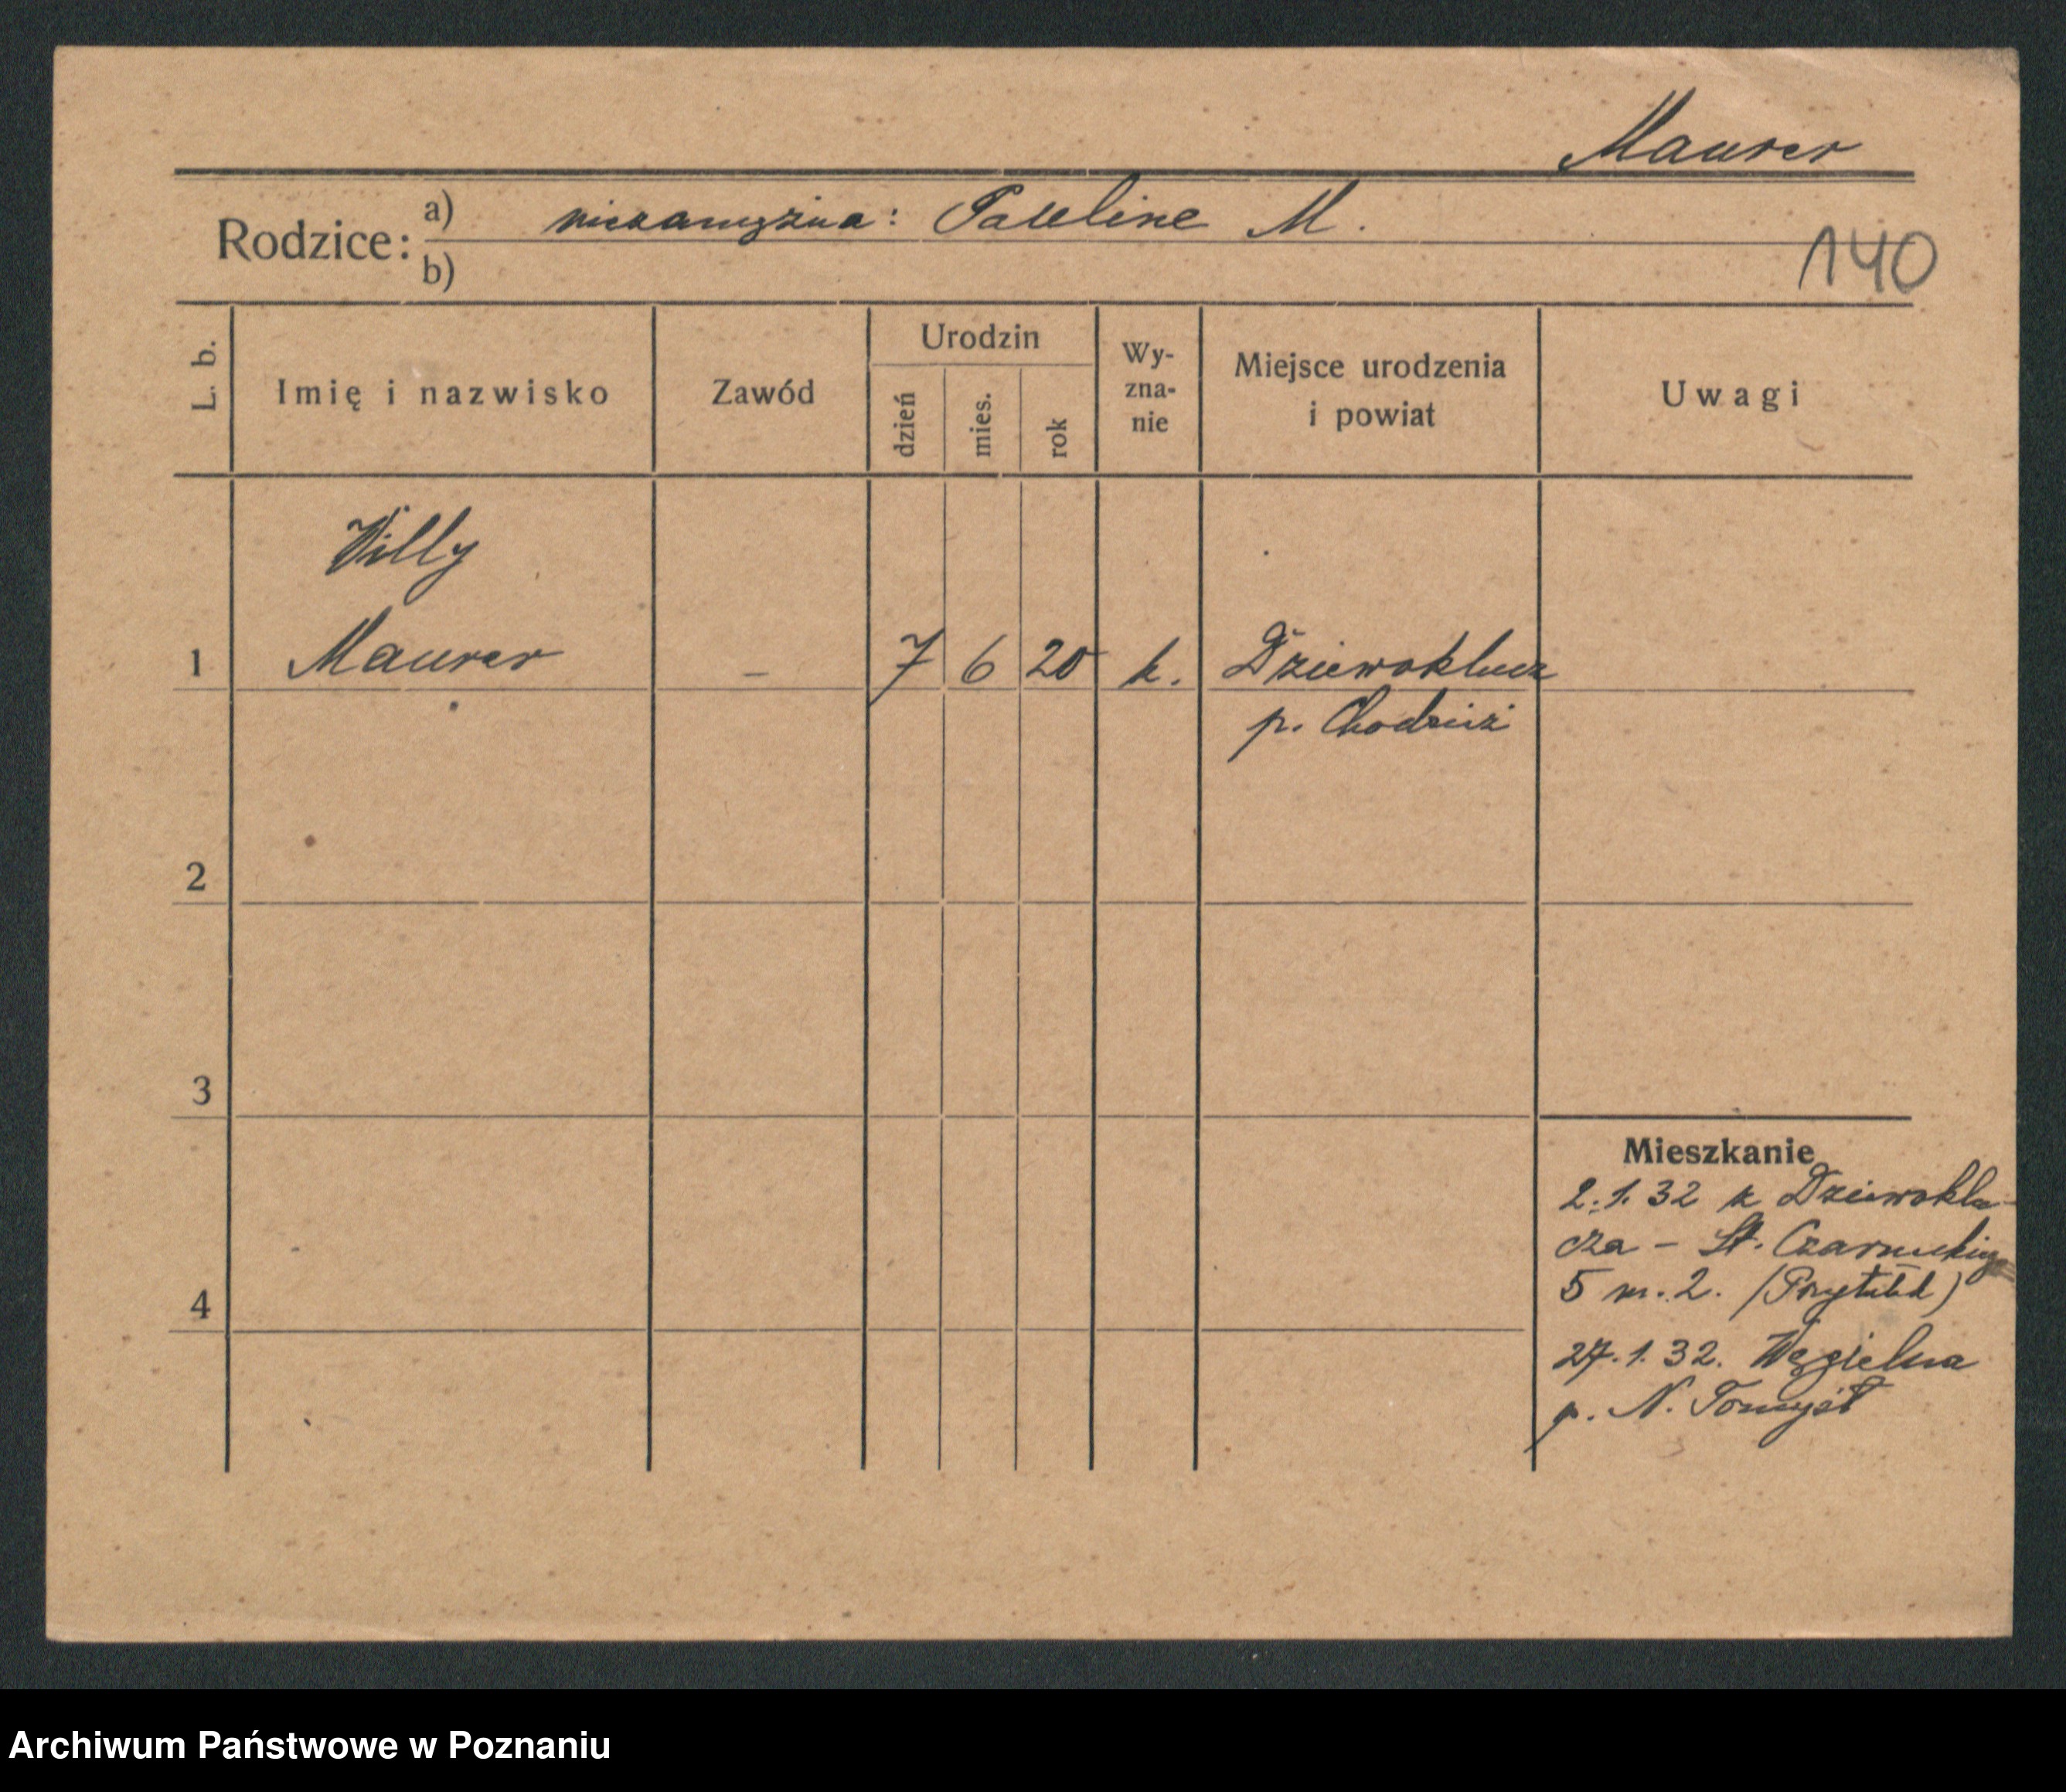 Maurer
Rodzice: a) niezamężna: Pauline M.
b)
140
L. b.
Imię i nazwisko
Zawód
Urodzin
dzień
mies.
rok
Wy-
zna-
nie
Miejsce urodzenia
i powiat
Uwagi
Willy
1 Maurer - 7 6 20 k. Dziewoklucz
p. Chodzież
2
3
4
Mieszkanie
2.1.32 z Dziewoklu-
cza - St. Czarneckiego
5 m. 2. (Przytułek)
27.1.32. Węgielna
p. N. Tomyśl
Archiwum Państwowe w Poznaniu